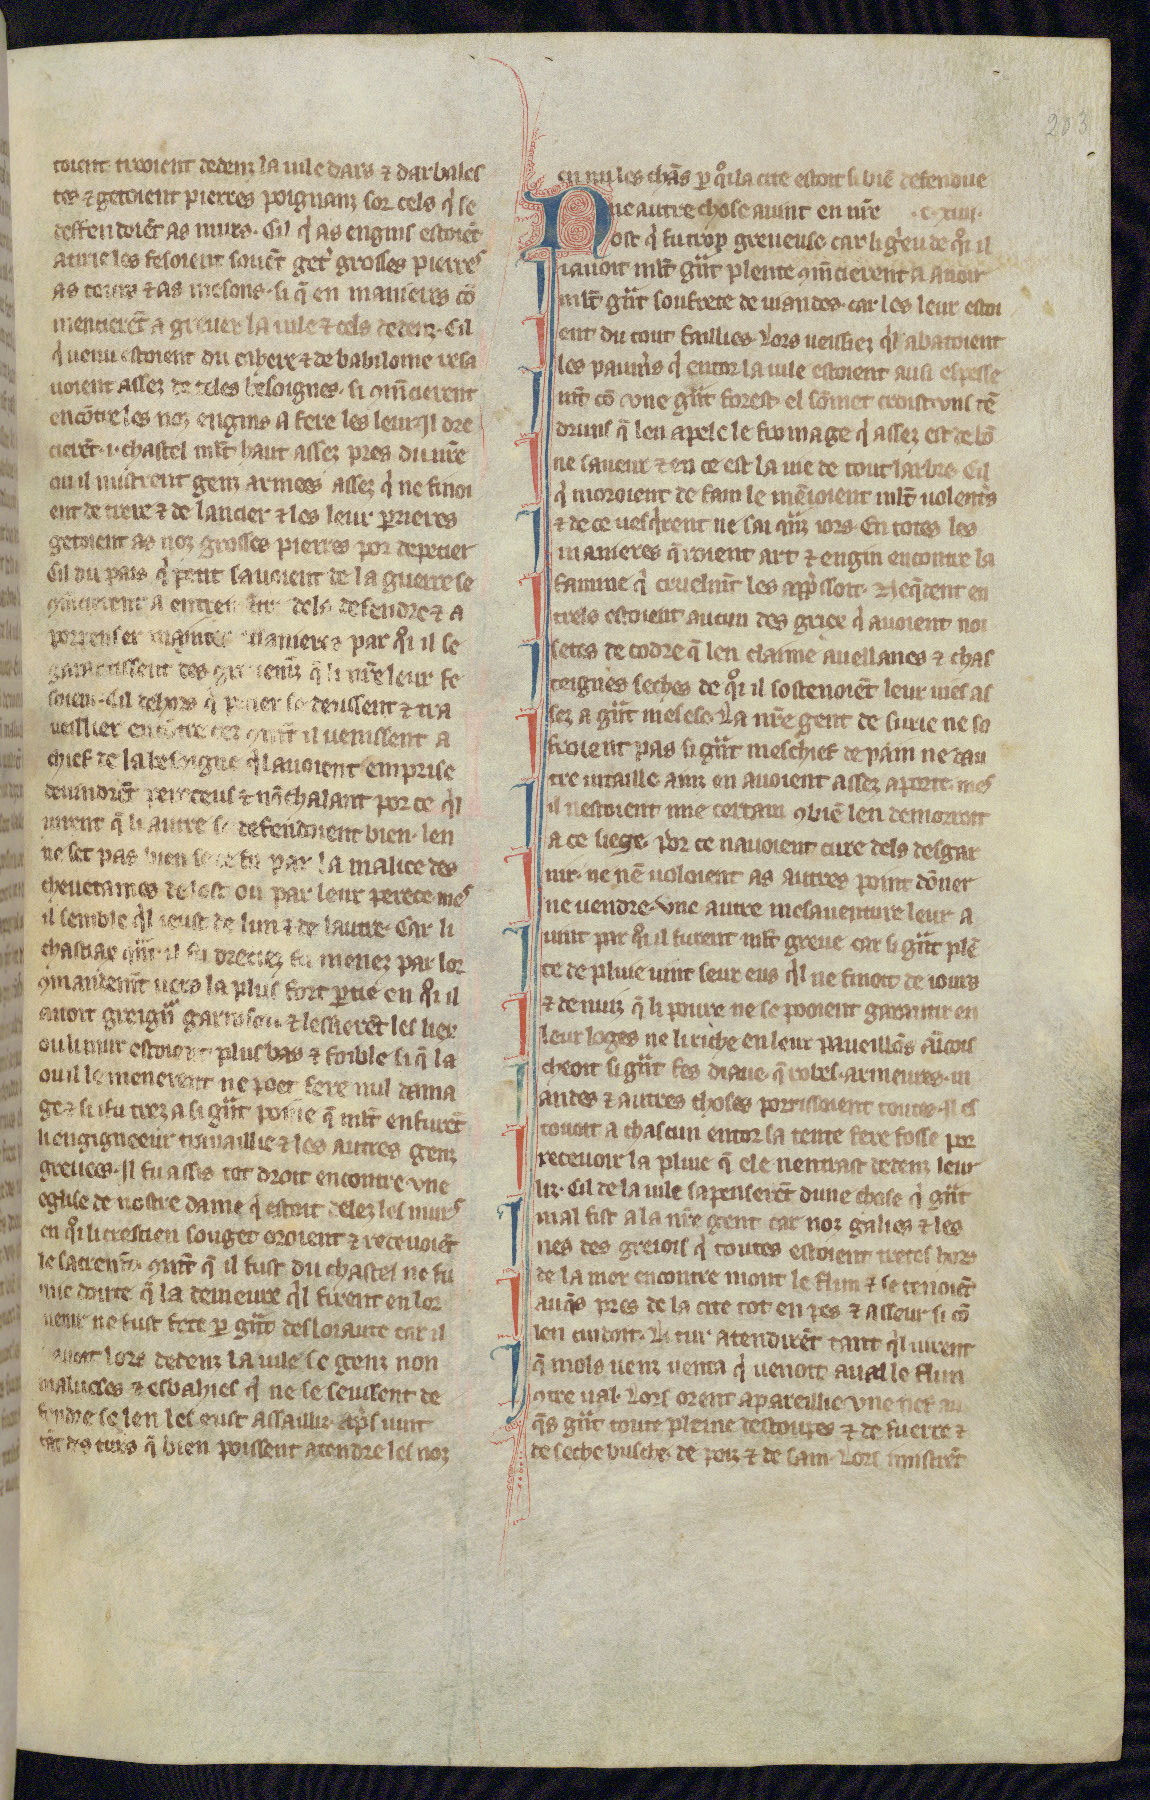 203
toient traoient dedenz la uile dars & darbales
tes & getoient pierres poignanz sor cels q̇ se
deffendoiẽt as murs. Cil q̇ as engins estoiẽt
atirie les fesoient souẽt get' grosses pierres
as tours & as mesons. si q̃ en manieres cõ
mencierẽt a greuer la uile & cels dedenz. Cil
q̇ uenu estoient du cahere & de babiloine resa
uoient assez de teles besoignes. si ꝯmẽcierent
encõtre les noz engins a fere les leur. Il dre
cierẽt .i. chastel ml't haut assez pres du nr̃e
ou il mistrent genz armees assez q̇ ne finoi
ent de trere & de lancier & les leur ꝑrieres
getoient as noz grosses pierres por depecier
Cil du pais q̇ petit sauoient de la guerre se
ꝯmẽcierent a dels defendre & a
porpenser maintes manieres par q̊i il se
garantissent des q̃ li nr̃e leur fe
soient. Cil dehors q̇ se deussent & tra
ueillier encõtre cez il uenissent a
chief de la besoigne q̇l auoient emprise
deuindrẽt pereceus & nõchalant por ce q̇l
uirent q̃ li autre se defendoient bien. len
ne set pas bien se ce fu par la malice des
cheuetaines de lost ou par leur perece. mes
il semble q̇l ieust de lun & de lautre. Car li
chastiax q̃nt il fu dreciez fu menez par lor
ꝯmandemẽt uers la plus fort ꝑtie en q̊i il
auoit greigñ garnison & lessierẽt les lier
ou li mur estoient plus bas & foible si q̃ la
ou il le menerent ne poet fere nul dama
ge & si fu trez a si gñt poine q̃ ml't en furẽt
li engigneeur trauaillie & les autres genz
greuees. Il fu assis tot droit encontre une
eglise de nostre dame q̇ estoit delez les murs
en q̊i li crestien souget oroient & receuoiẽt
le sacremẽt. q̃nt q̃ il fust du chastel ne fu
mie doute q̃ la demeure q̇l firent en lor
uenir ne fust fete ꝑ gñt desloraute car il
auoit lors dedenz la uile se genz non
malueises & esbahies q̇ ne se seussent de
fendre se len les eust assaillir. ap̃s uint
tãt des turs q̃ bien poissent atendre les noz
en mi les chãs ꝑ q̊i la cite estoit si biẽ defendue
Une autre chose auint en nr̃e .c. xiiii.
ost q̇ fu trop greueuse. car li g̃eu de q̊i il
i auoit ml't gñt plente ꝯmẽcierent a auoir
ml't gñt soufrete de uiandes. car les leur estoi
ent du tout faillies. Lors ueissiez q̇l abatoient
les paumiers q̇ entor la uile estoient ausi espesse
mẽt cõ une gñt forest. el sõmet croist uns tẽ
druns q̃ len apele le fromage q̇ assez est de bõ
ne saueur & en ce est la uie de tout larbre. Cil
q̇ moroient de fain le mẽioient ml't uolent̾s
& de ce uesq̇rent ne sai q̃nz iors. En totes les
manieres q̃roient art & engin encontre la
famine q̇ cruelmẽt les app̃ssoit. Neq̃dent en
trels estoient aucun des grice q̇ auoient noi
setes de codre q̃ len claime auellanes & chas
teignes seches de q̊i il sostenoiẽt leur uies as
sez a gñt mesese. La nr̃e gent de surie ne so
froient pas si gñt meschief de pain ne dau
tre uitaille. ainz en auoient assez aporte. mes
il nestoient mie certain ꝯbiẽ len demorroit
a ce siege. por ce nauoient cure dels desgar
nir. ne nẽ uoloient as autres point dõner
ne uendre. Une autre mesauenture leur a
uint par q̊i il furent ml't greue car si gñt plẽ
te de pluie uint seur eus q̇l ne finoit de iours
& de nuiz q̃ li poure ne se pooient garantir en
leur loges ne li riche en leur paueillõs aĩcois
cheoit si gñt fes diaue. q̃ robes. armeures. ui
andes & autres choses porrissoient toutes. Il es
touoit a chascun entor sa tente fere fosse por
receuoir la pluie q̃ ele nentrast dedenz leur
liz. Cil de la uile sapenserẽt dune chose q̇ gñt
mal fist a la nr̃e gent. car noz galies & les
nes des greiois q̇ toutes estoient tretes hors
de la mer encontre mont le flun & se tenoiẽt
auq̃s pres de la cite tot en pes & asseur si cõ
len cuidoit. Li tur atendirẽt tant q̇l uirent
q̃ mols uenz uenta q̇ uenoit aual le flun
ꝯtre ual. Lors orent apareillie une nef au
q̃s gñt toute pleine destoupes & de fuerre &
de seche busche. de poiz & de sain. Lors mistrẽt